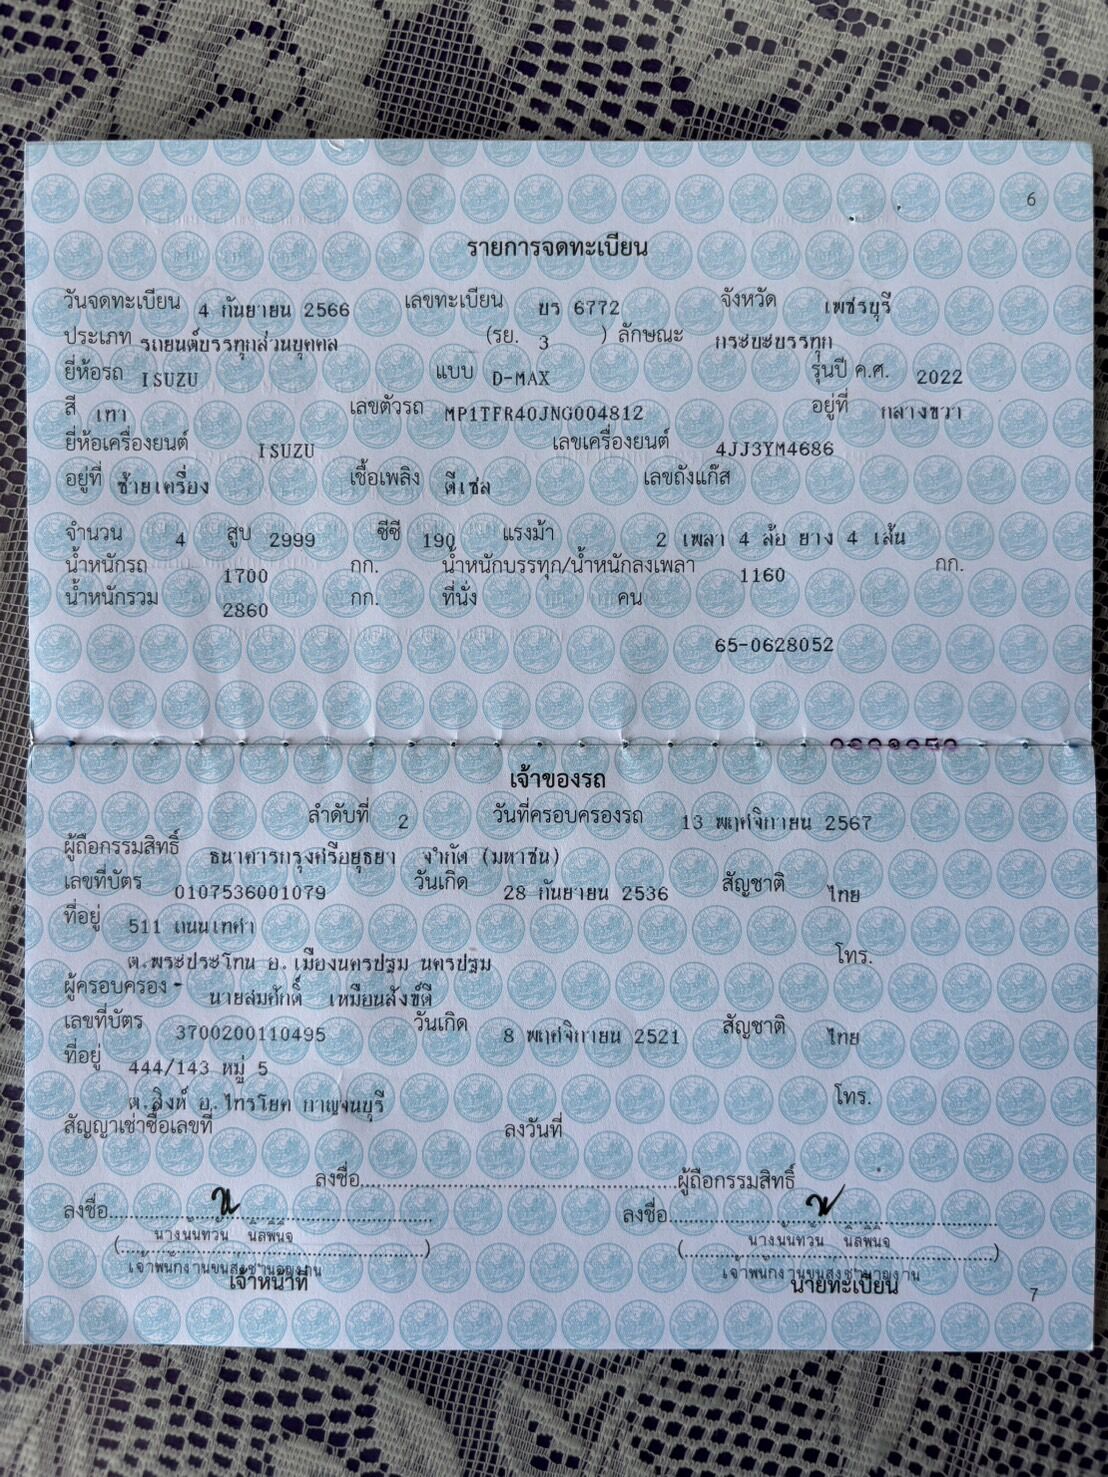 6
รายการจดทะเบียน
วันจดทะเบียน 4 กันยายน 2566 เลขทะเบียน ยร 6772 จังหวัด เพชรบุรี
ประเภท รถยนต์บรรทุกส่วนบุคคล (รย. 3 ) ลักษณะ กระบะบรรทุก
ยี่ห้อรถ ISUZU แบบ D-MAX รุ่นปี ค.ศ. 2022
สี เทา เลขตัวรถ MP1TFR40JNG004812 อยู่ที่ กลางขวา
ยี่ห้อเครื่องยนต์ ISUZU เลขเครื่องยนต์ 4JJ3YM4686
อยู่ที่ ซ้ายเครื่อง เชื้อเพลิง ดีเซล เลขถังแก๊ส
จำนวน 4 สูบ 2999 ซีซี 190 แรงม้า 2 เพลา 4 ล้อ ยาง 4 เส้น
น้ำหนักรถ 1700 กก. น้ำหนักบรรทุก/น้ำหนักลงเพลา 1160 กก.
น้ำหนักรวม 2860 กก. ที่นั่ง คน
65-0628052
เจ้าของรถ
ลำดับที่ 2 วันที่ครอบครองรถ 13 พฤศจิกายน 2567
ผู้ถือกรรมสิทธิ์ ธนาคารกรุงศรีอยุธยา จำกัด (มหาชน)
เลขที่บัตร 0107536001079 วันเกิด 28 กันยายน 2536 สัญชาติ ไทย
ที่อยู่ 511 ถนนเทศา
ต.พระประโทน อ.เมืองนครปฐม นครปฐม โทร.
ผู้ครอบครอง - นายสมศักดิ์ เหมือนสังข์ดี
เลขที่บัตร 3700200110495 วันเกิด 8 พฤศจิกายน 2521 สัญชาติ ไทย
ที่อยู่ 444/143 หมู่ 5
ต.สิงห์ อ.ไทรโยค กาญจนบุรี โทร.
สัญญาเช่าซื้อเลขที่ ลงวันที่
ลงชื่อ ผู้ถือกรรมสิทธิ์
ลงชื่อ ลงชื่อ
(นางนันทวัน นิลพินิจ) (นางนันทวัน นิลพินิจ)
เจ้าพนักงานขนส่งชำนาญงาน เจ้าพนักงานขนส่งชำนาญงาน
เจ้าหน้าที่ นายทะเบียน
7